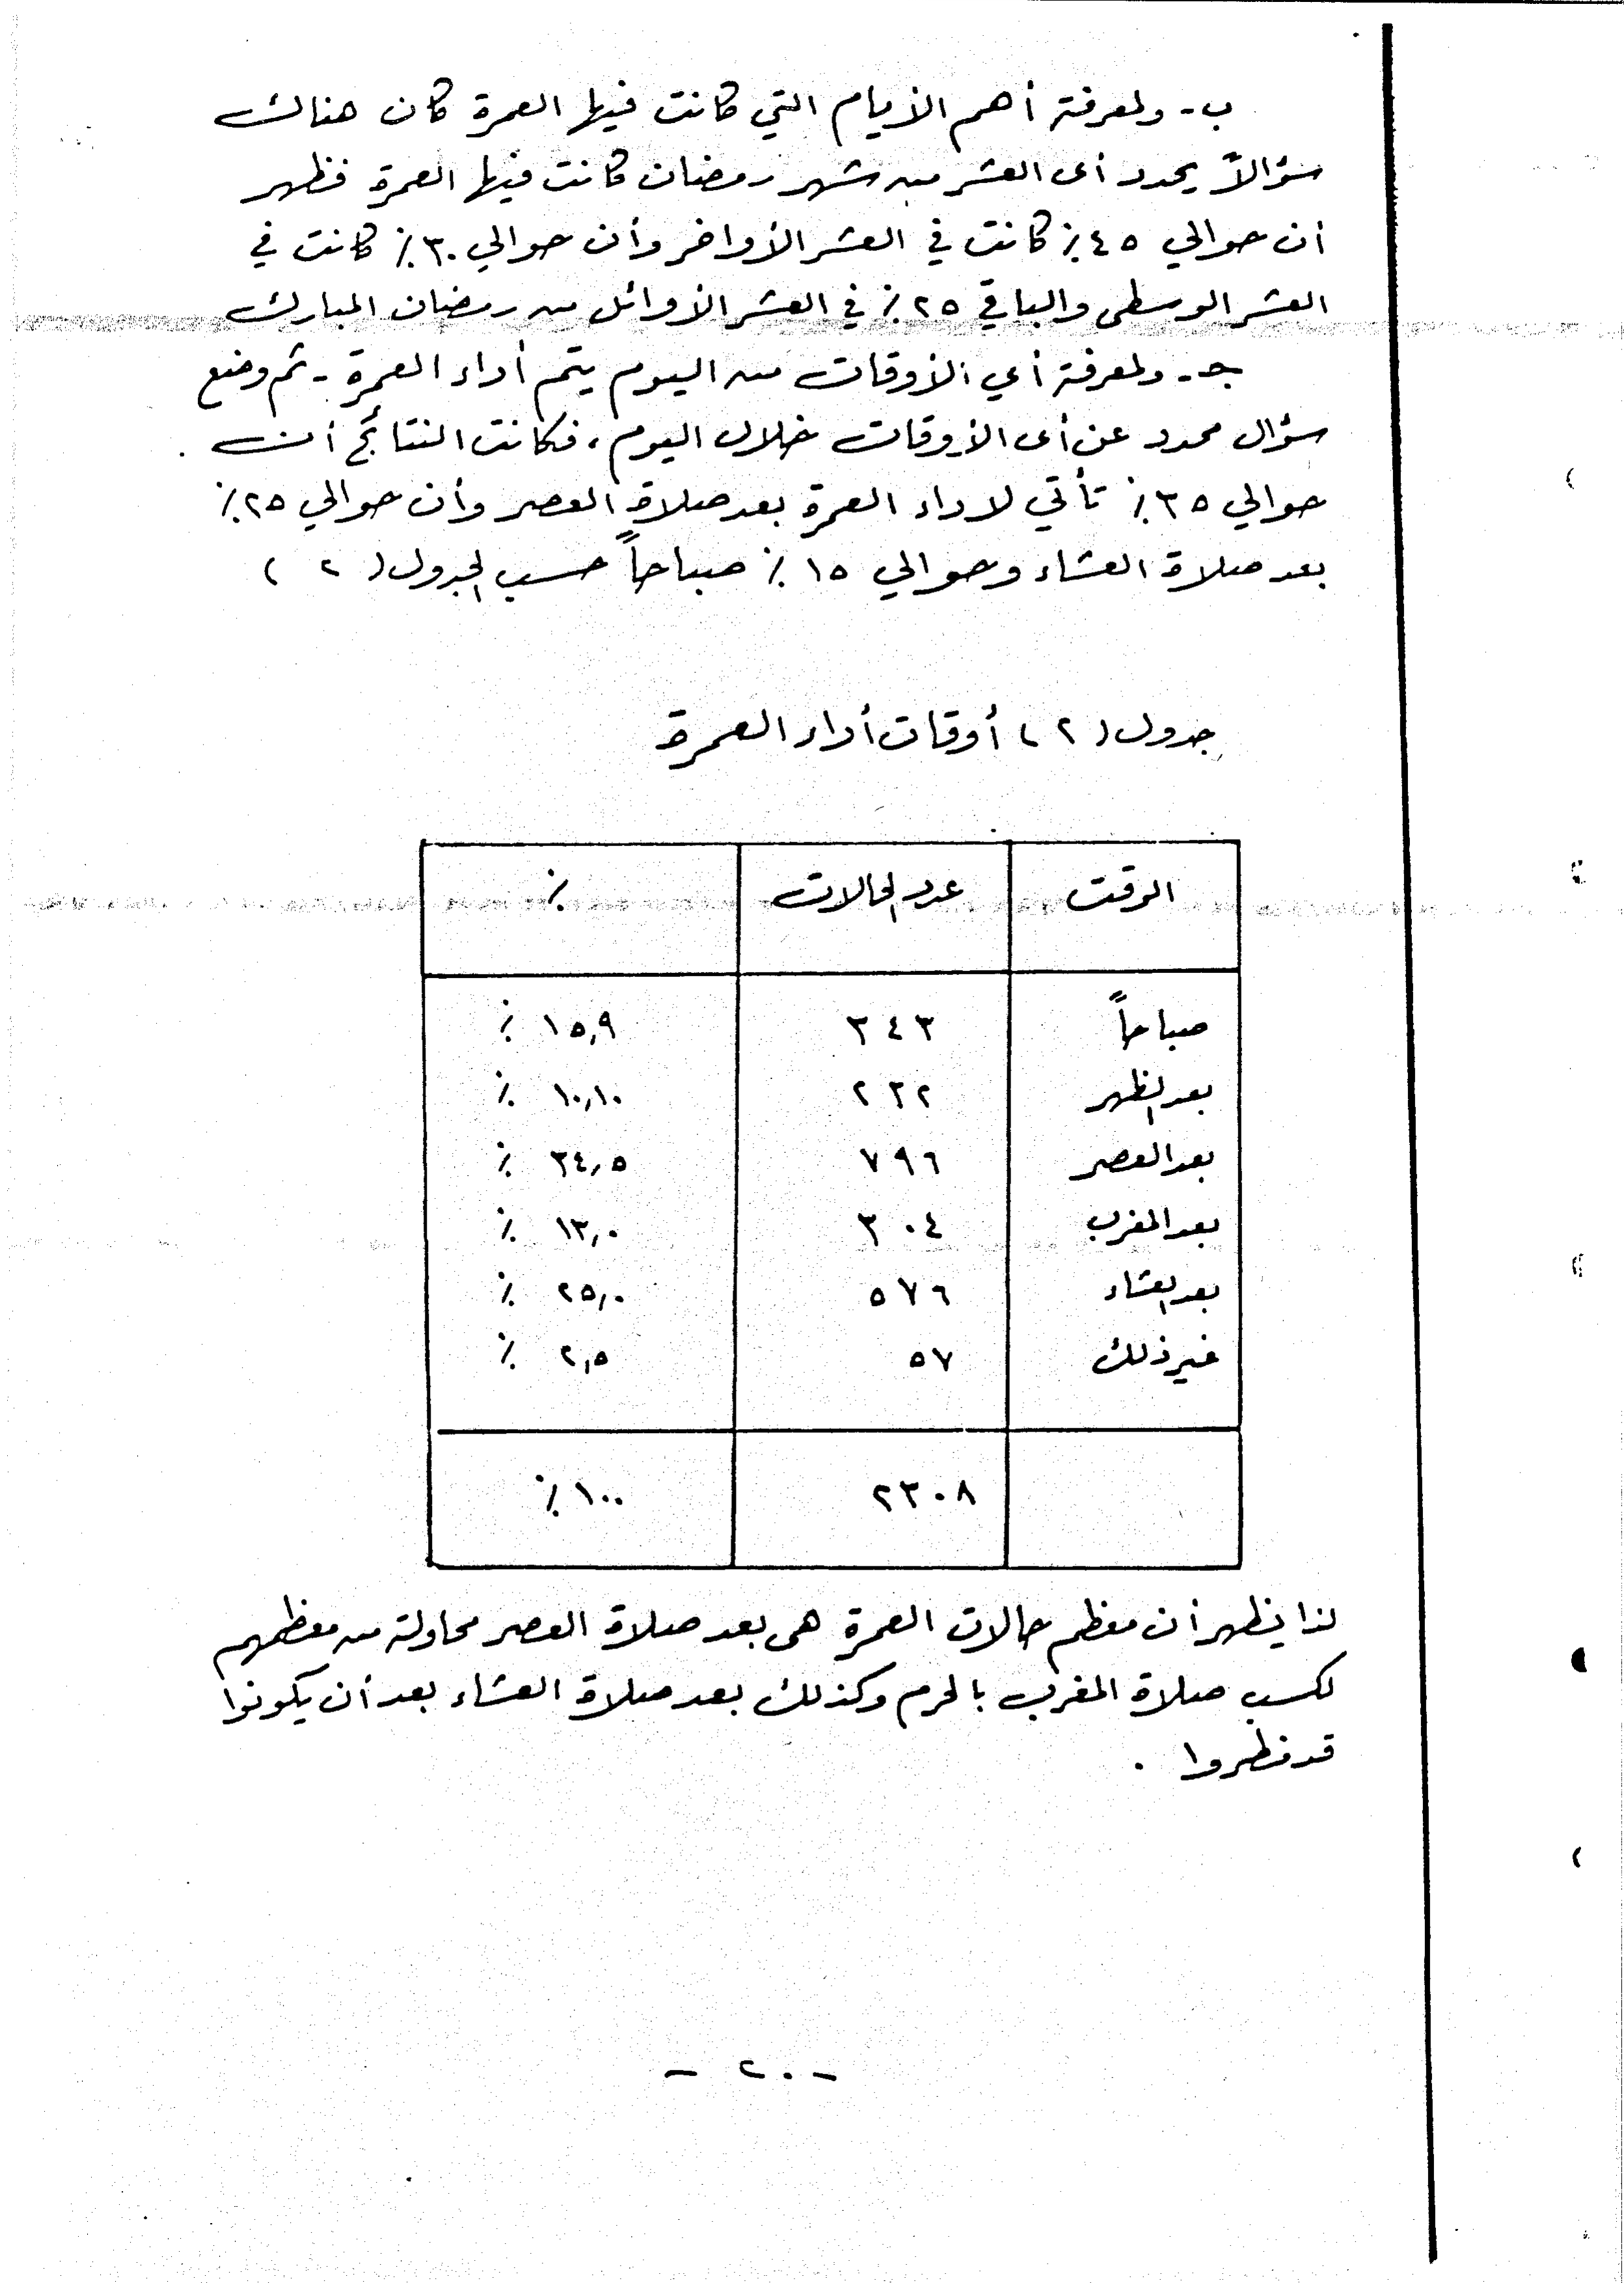 ب - ولمعرفة أهم الأيام التي كانت فيها العمرة كان هناك
سؤالاً يحدد أى العشر من شهر رمضان كانت فيها العمرة فظهر
أن حوالي ٤٥ ٪ كانت في العشر الأواخر وأن حوالي ٣٠ ٪ كانت في
العشر الوسطى والباقي ٢٥ ٪ في العشر الأوائل من رمضان المبارك
جـ - ولمعرفة أي الأوقات من اليوم يتم أداء العمرة - تم وضع
سؤال محدد عن أى الأوقات خلال اليوم ، فكانت النتائج أن
حوالي ٣٥ ٪ تأتي لاداء العمرة بعد صلاة العصر وأن حوالي ٢٥ ٪
بعد صلاة العشاء وحوالي ١٥ ٪ صباحاً حسب الجدول ( ٢ )
جدول ( ٢ ) أوقات أداء العمرة
الوقت عدد الحالات ٪
صباحاً ٣٤٣ ١٥,٩ ٪
بعد الظهر ٢٣٢ ١٠,١٠ ٪
بعد العصر ٧٩٦ ٣٤,٥ ٪
بعد المغرب ٣٠٤ ١٣,٠ ٪
بعد العشاء ٥٧٦ ٢٥,٠ ٪
غير ذلك ٥٧ ٢,٥ ٪
٢٣٠٨ ١٠٠ ٪
لذا يظهر أن معظم حالات العمرة هى بعد صلاة العصر محاولة من معظمهم
لكسب صلاة المغرب بالحرم وكذلك بعد صلاة العشاء بعد أن يكونوا
قد فطروا .
- ٢٠ -